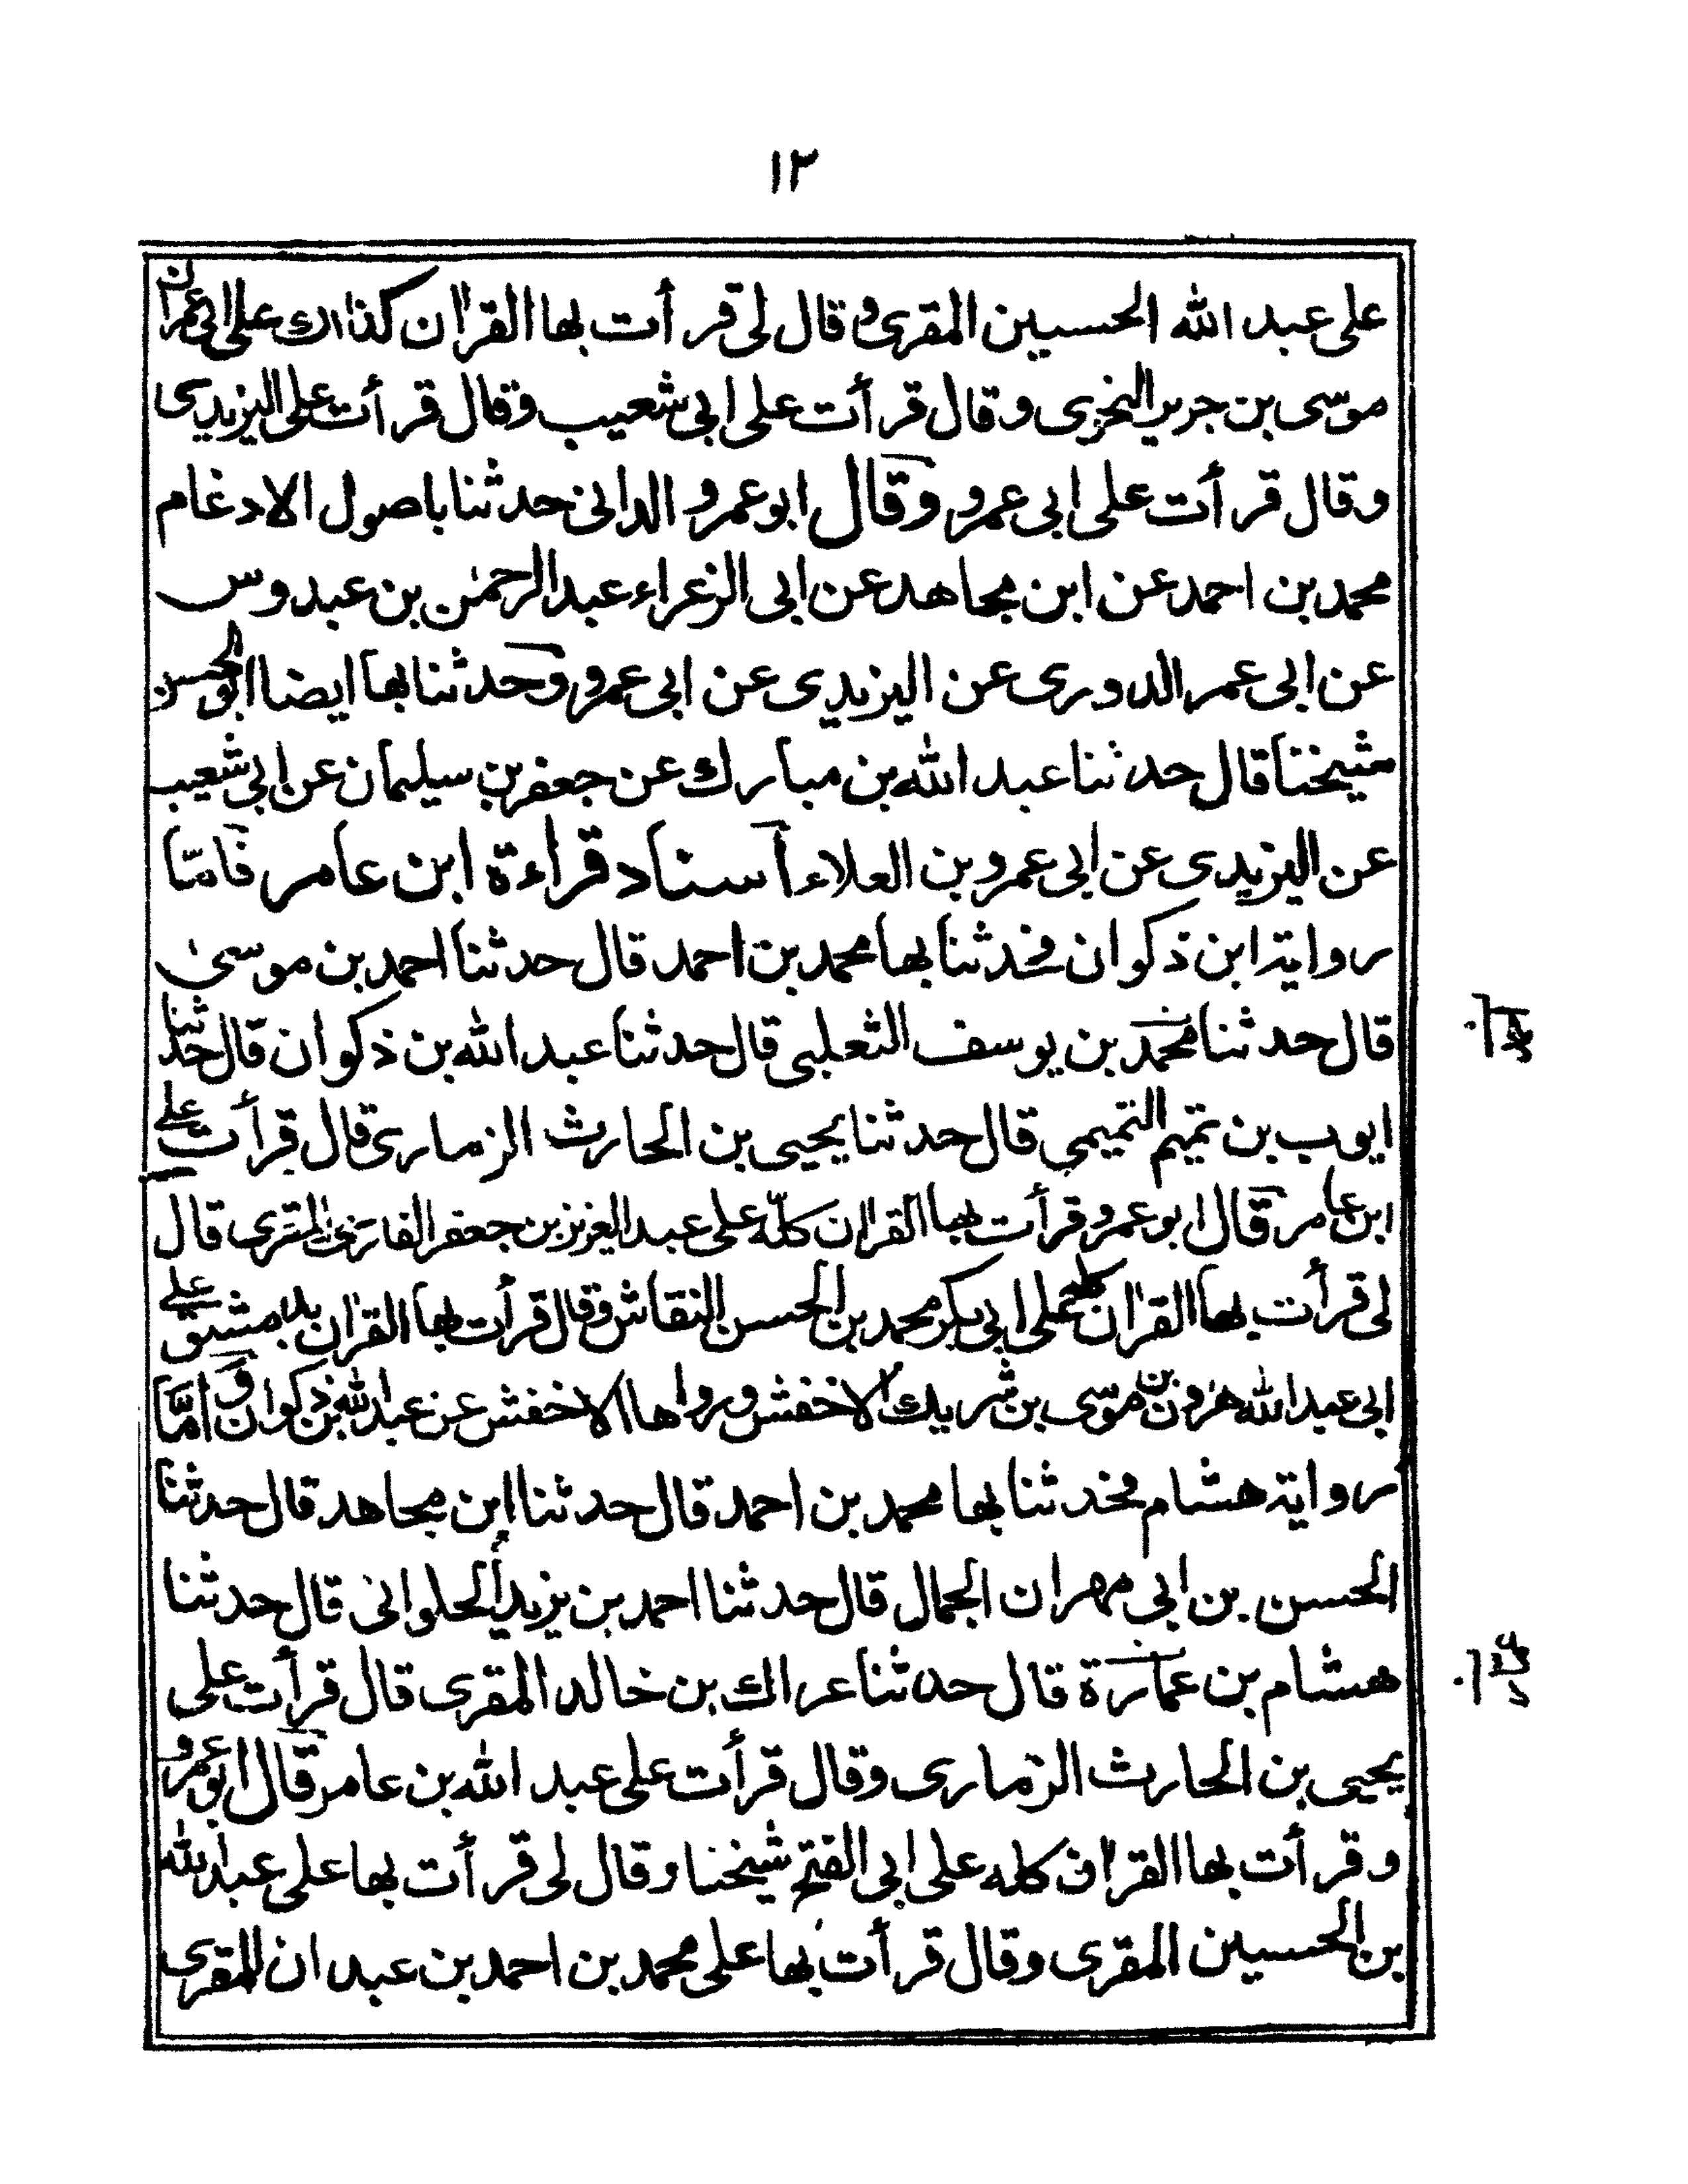 ١٢
على عبد الله الحسين المقرئ وقال لى قرأت بها القرآن كذالك على ابى عمران
موسى بن جرير النحوى وقال قرأت على ابى شعيب وقال قرأت على اليزيدى
وقال قرأت على ابى عمرو وقال ابو عمرو الدانى حدثنا باصول الادغام
محمد بن احمد عن ابن مجاهد عن ابى الزعراء عبد الرحمٰن بن عبدوس
عن ابى عمر الدورى عن اليزيدى عن ابى عمرو وحدثنا بها ايضا ابو الحسن
شيخنا قال حدثنا عبد الله بن مبارك عن جعفر بن سليمان عن ابى شعيب
عن اليزيدى عن ابى عمرو بن العلاء أسناد قراءة ابن عامر فامّا
رواية ابن ذكوان فحدثنا بها محمد بن احمد قال حدثنا احمد بن موسىٰ
قال حدثنا محمد بن يوسف الثعلبى قال حدثنا عبد الله بن ذكوان قال حدثنا
ايوب بن تميم التميمى قال حدثنا يحيى بن الحارث الزمارى قال قرأت على
ابن عامر قال ابو عمرو قرأت بها القرآن كلّه على عبد العزيز بن جعفر الفارسى المقرى قال
لى قرأت بها القرآن كله على ابى بكر محمد بن الحسن النقاش وقال قرأت بها القرآن بدمشق على
ابى عبد الله هٰرون بن موسى بن شريك الاخفش ورواها الاخفش عن عبد الله بن ذكوان وامّا
رواية هشام فحدثنا بها محمد بن احمد قال حدثنا ابن مجاهد قال حدثنا
الحسن بن ابى مهران الجمال قال حدثنا احمد بن يزيد الحلوانى قال حدثنا
هشام بن عمارة قال حدثنا عراك بن خالد المقرى قال قرأت على
يحيى بن الحارث الزمارى وقال قرأت على عبد الله بن عامر قال ابو عمرو
وقرأت بها القرآن كله على ابى الفتح شيخنا وقال لى قرأت بها على عبد الله
بن الحسين المقرى وقال قرأت بها على محمد بن احمد بن عبدان المقرى